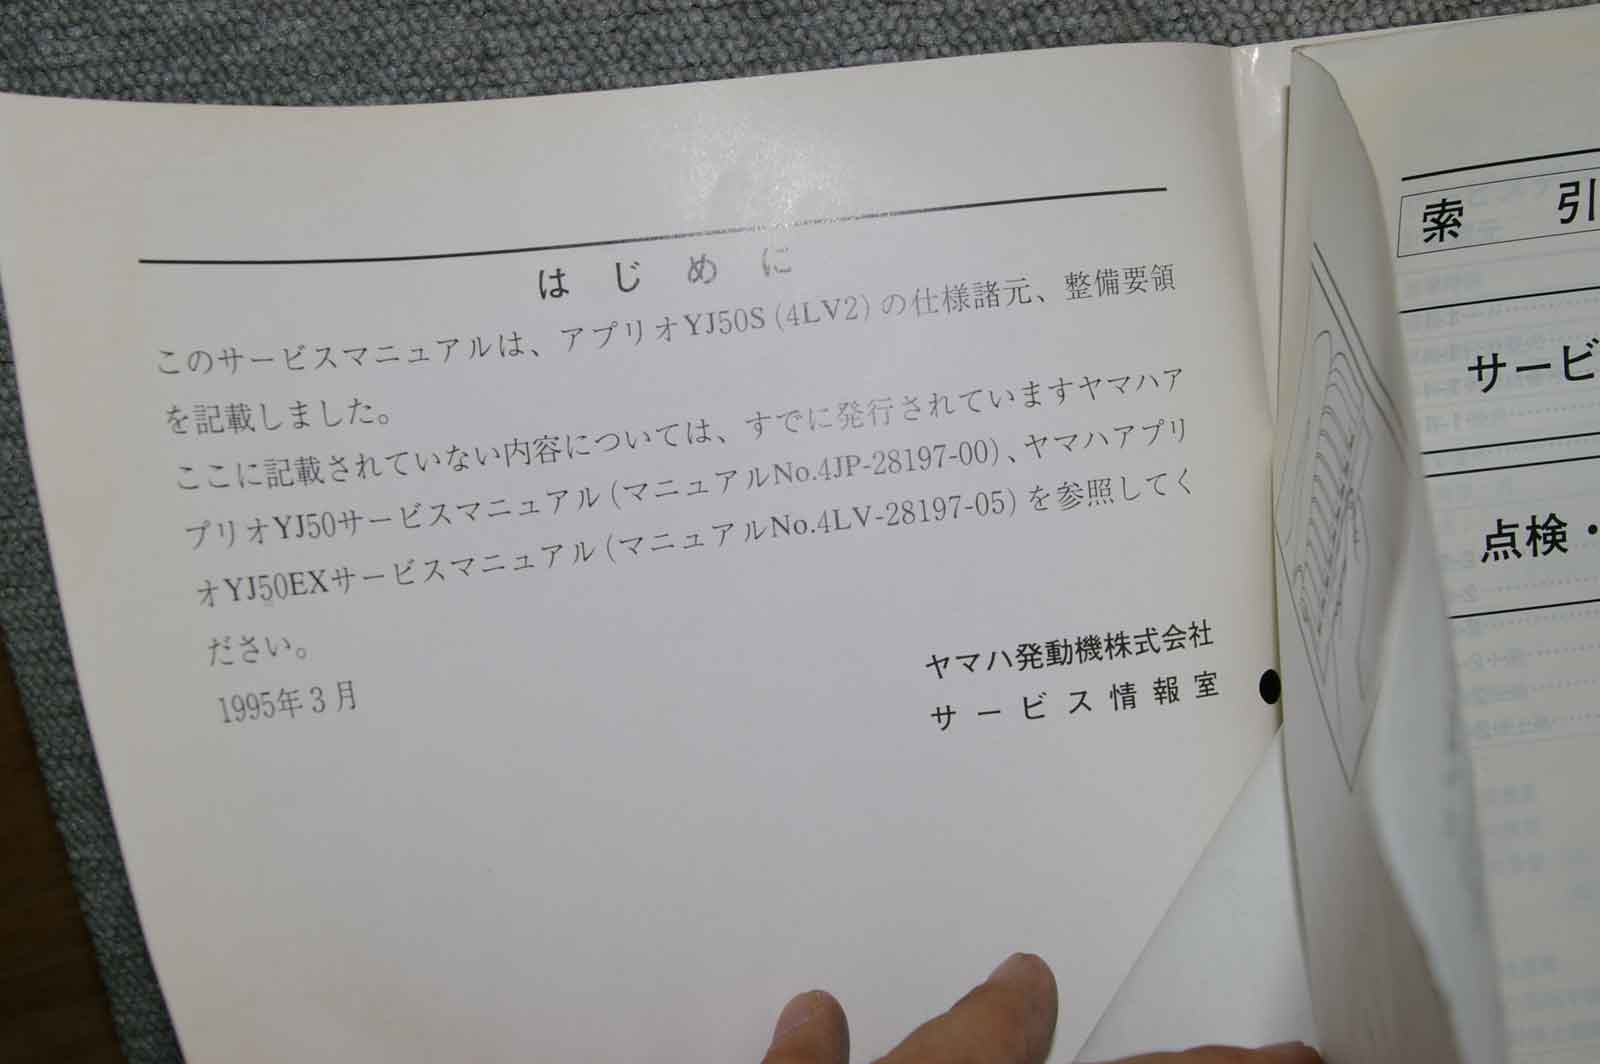 はじめに
このサービスマニュアルは、アプリオYJ50S(4LV2)の仕様諸元、整備要領
を記載しました。
ここに記載されていない内容については、すでに発行されていますヤマハア
プリオYJ50サービスマニュアル(マニュアルNo.4JP-28197-00)、ヤマハアプリ
オYJ50EXサービスマニュアル(マニュアルNo.4LV-28197-05)を参照してく
ださい。
1995年3月
ヤマハ発動機株式会社
サービス情報室
索引
サービ
点検・